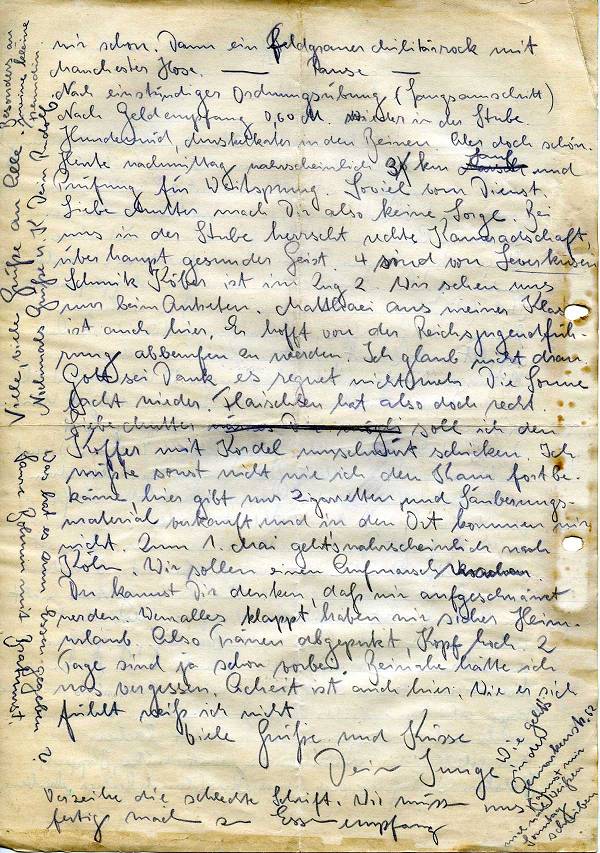 wir schon. Dann ein feldgrauer Militärrock mit
Manchester Hose. — Pause —
Nach einstündiger Ordnungsübung (Langsamschritt)
Nach Geldempfang 0,60 M. wieder in der Stube.
Hundemüd, Muskelkater in den Beinen. Aber doch schön.
Heute nachmittag wahrscheinlich 3 km und
Prüfung für Weitsprung. Soviel vom Dienst.
Liebe Mutter mach Dir also keine Sorge. Bei
uns in der Stube herrscht echte Kameradschaft,
überhaupt gesunder Geist. 4 sind von Leverkusen
Köber ist im Zug 2 Wir sehen uns
nur beim Antreten. Matthaei aus meiner Klasse
ist auch hier. Er hofft von der Reichsjugendfüh-
rung abberufen zu werden. Ich glaub nicht dran
Gott sei Dank es regnet nicht mehr Die Sonne
lacht wieder. Häuschen hat also doch recht.
Liebe Mutter soll ich den
Koffer mit Kordel umschnürt schicken. Ich
wüßte sonst nicht wie ich den Kram fortbe-
käme hier gibt nur Zigaretten und Säuberungs-
material verkauft und in den Ort kommen wir
nicht. Zum 1. Mai geht's wahrscheinlich nach
Köln. Wir sollen einen Aufmarsch
Du kannst Dir denken, daß wir aufgeschmiert
werden. Wenn alles klappt haben wir sicher Heim-
urlaub. Also Tränen abgeputzt, Kopf hoch. 2
Tage sind ja schon vorbei. Beinahe hätte ich
was vergessen. ist auch hier. Wie er sich
fühlt weiß ich nicht
Viele Grüße und Küsse
Dein Junge
Verzeihe die schlechte Schrift. Wir müssen uns
fertig machen zum Essenempfang
Viele, viele Grüße an alle. Besonders an
meine kleine
Freundin.
Nochmals Grüße K Dein Rudolf
Was hat es zum Essen gegeben?
Wie geht's
in der
62
Kannst mir
Sonntag
schreiben